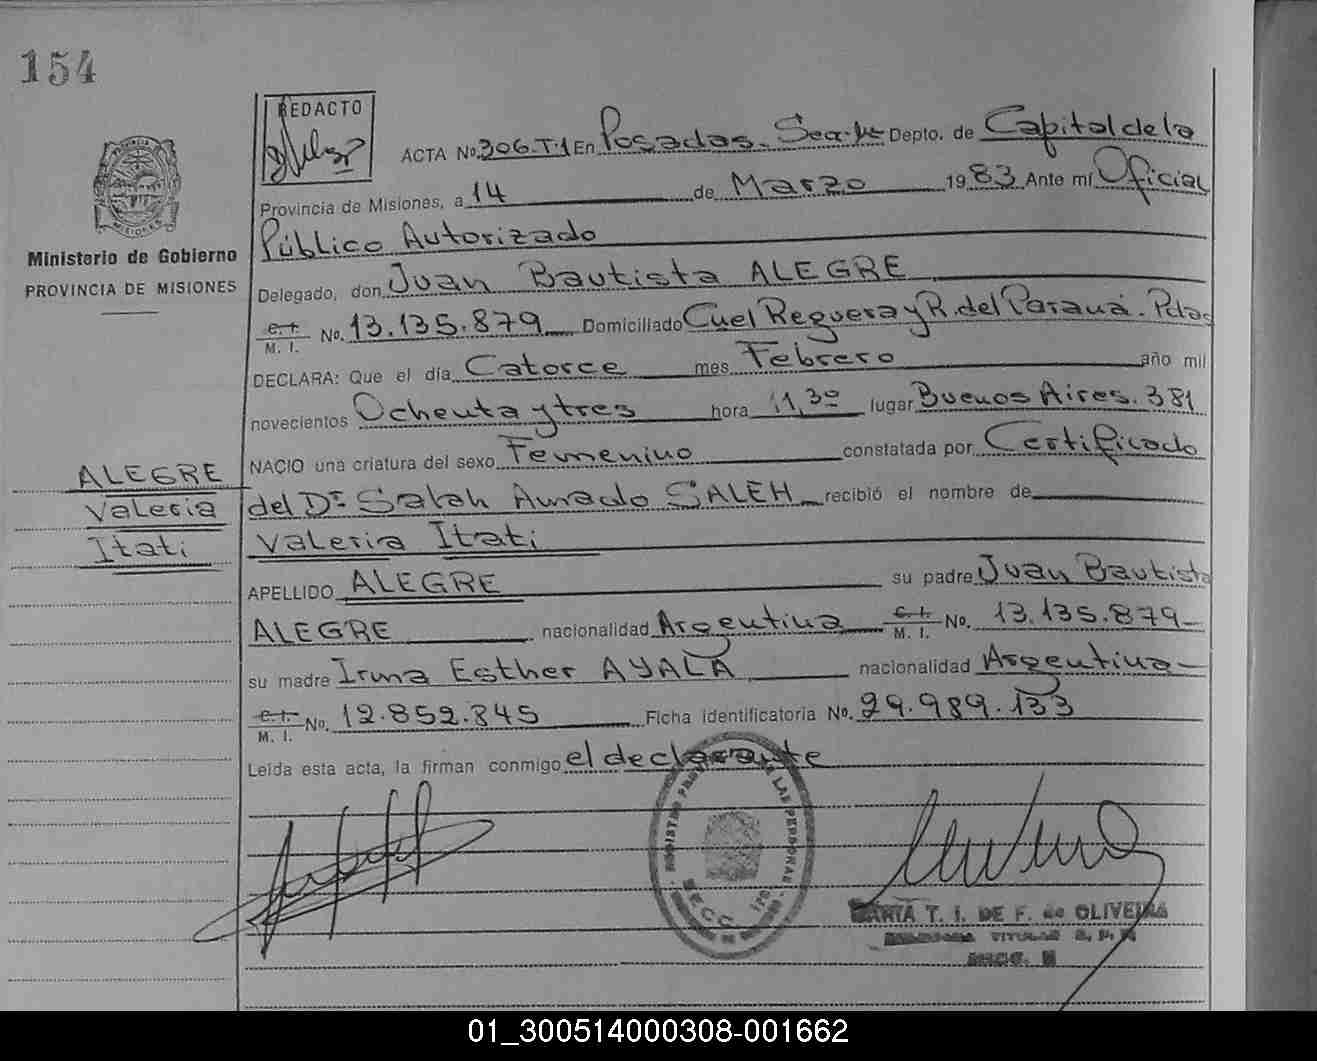 154
REDACTO
ACTA No. 306.T.1 En Posadas. Depto. de Capital de la
Provincia de Misiones, a 14 de Marzo 1983 Ante mí Oficial
Público Autorizado
PROVINCIA
MISIONES
Ministerio de Gobierno
PROVINCIA DE MISIONES
Delegado, don Juan Bautista ALEGRE
C.I. M. I. No. 13.135.879 Domiciliado Cuel Reguera y R. del Paraná. Pdas
DECLARA: Que el día Catorce mes Febrero año mil
novecientos Ochenta y tres hora 11,30 lugar Buenos Aires. 381
NACIO una criatura del sexo Femenino constatada por Certificado
ALEGRE
Valeria
Itati
del Dr. Salah Amado SALEH recibió el nombre de
Valeria Itati
APELLIDO ALEGRE su padre Juan Bautista
ALEGRE nacionalidad Argentina C.I. M. I. No. 13.135.879
su madre Irma Esther AYALA nacionalidad Argentina
C.I. M. I. No. 12.852.845 Ficha identificatoria No. 29.989.133
Leída esta acta, la firman conmigo el declarante
DE LAS PERSONAS
MARIA T. I. DE F. de OLIVEIRA
TITULAR
01_300514000308-001662